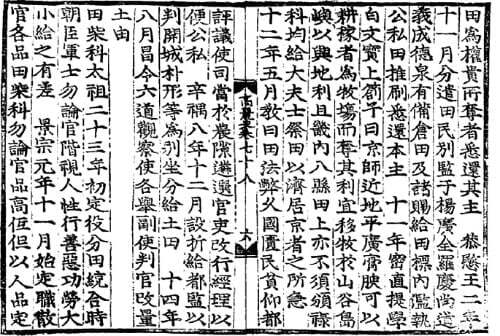 田爲權貴所奪者悉還其主　恭愍王二年
十一月分遣田民別監于楊廣全羅慶尚道
義成德泉有備倉田及諸賜給田標內濫執
公私田推刷悉還本主　十一年密直提學
白文寶上箚子曰京師近地平廣膏腴可以
耕稼者爲牧場而奪其利宜移牧於山谷島
嶼以興地利且畿內八縣田上亦不須頒祿
科均給大夫士祭田以濟居京者之所急
十二年五月敎曰田法弊久國匱民貧仰都
高麗史卷七十八　六
評議使司當於農隙遴選官吏改行經理以
便公私　辛禑八年十二月設折給都監以
判開城朴形等爲別坐分給土田　十四年
八月昌令六道觀察使各擧副使判官改量
土田
田柴科太祖二十三年初定役分田統合時
朝臣軍士勿論官階視人性行善惡功勞大
小給之有差　景宗元年十一月始定職散
官各品田柴科勿論官品高低但以人品定